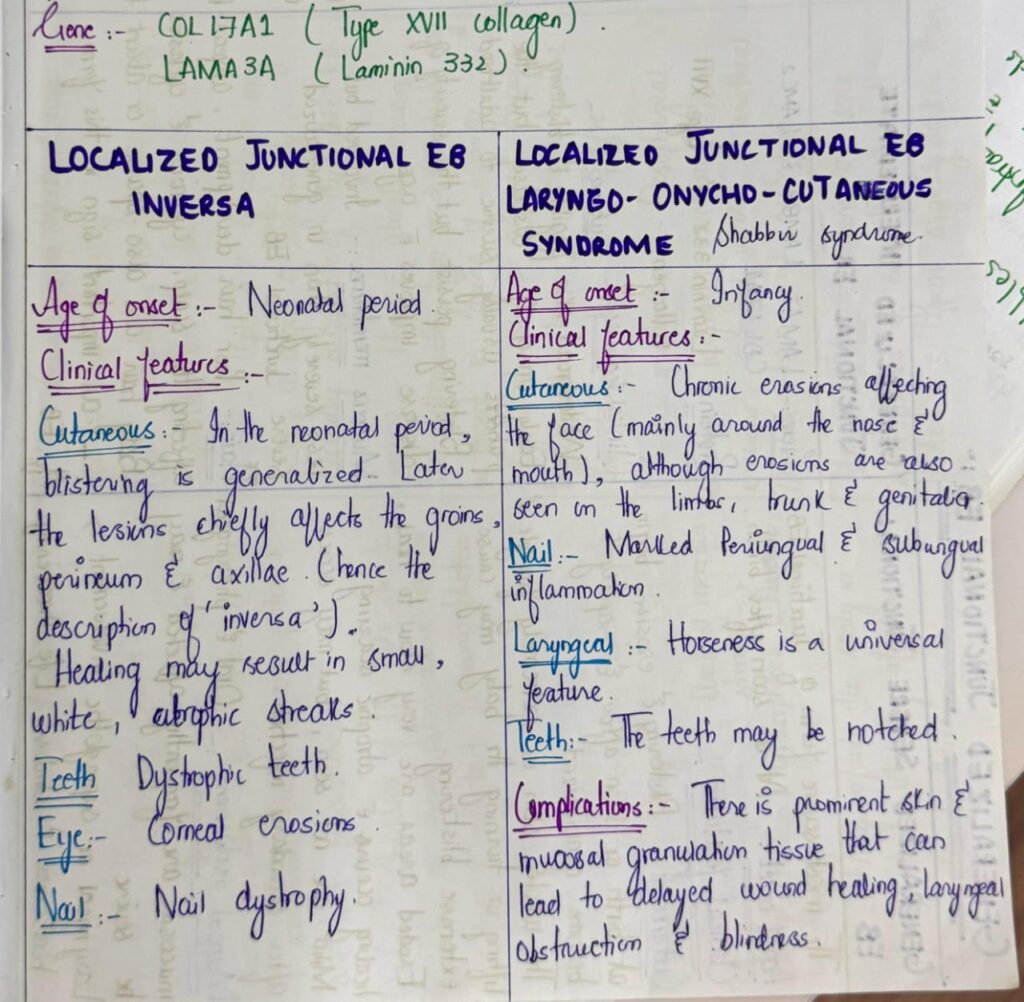 Gene :- COL17A1 ( Type XVII collagen) .
LAMA3A ( Laminin 332).
LOCALIZED JUNCTIONAL EB
INVERSA
Age of onset :- Neonatal period.
Clinical features :-
Cutaneous :- In the neonatal period,
blistering is generalized. Later
the lesions chiefly affects the groins,
perineum & axillae. (hence the
description of 'inversa').
Healing may result in small,
white, atrophic streaks.
Teeth Dystrophic teeth.
Eye:- Corneal erosions.
Nail :- Nail dystrophy.
LOCALIZED JUNCTIONAL EB
LARYNGO-ONYCHO-CUTANEOUS
SYNDROME Shabbir syndrome.
Age of onset :- Infancy.
Clinical features :-
Cutaneous :- Chronic erosions affecting
the face (mainly around the nose &
mouth), although erosions are also
seen on the limbs, trunk & genitalia.
Nail :- Marked Periungual & subungual
inflammation.
Laryngeal :- Horseness is a universal
feature.
Teeth:- The teeth may be notched.
Complications :- There is prominent skin &
mucosal granulation tissue that can
lead to delayed wound healing, laryngeal
obstruction & blindness.